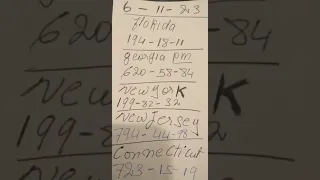 6 - 11 - 23
florida
194-18-11
georgia pm
620-58-84
New York
199-82-32
New Jersey
794-44-78
Connecticut
723-15-19